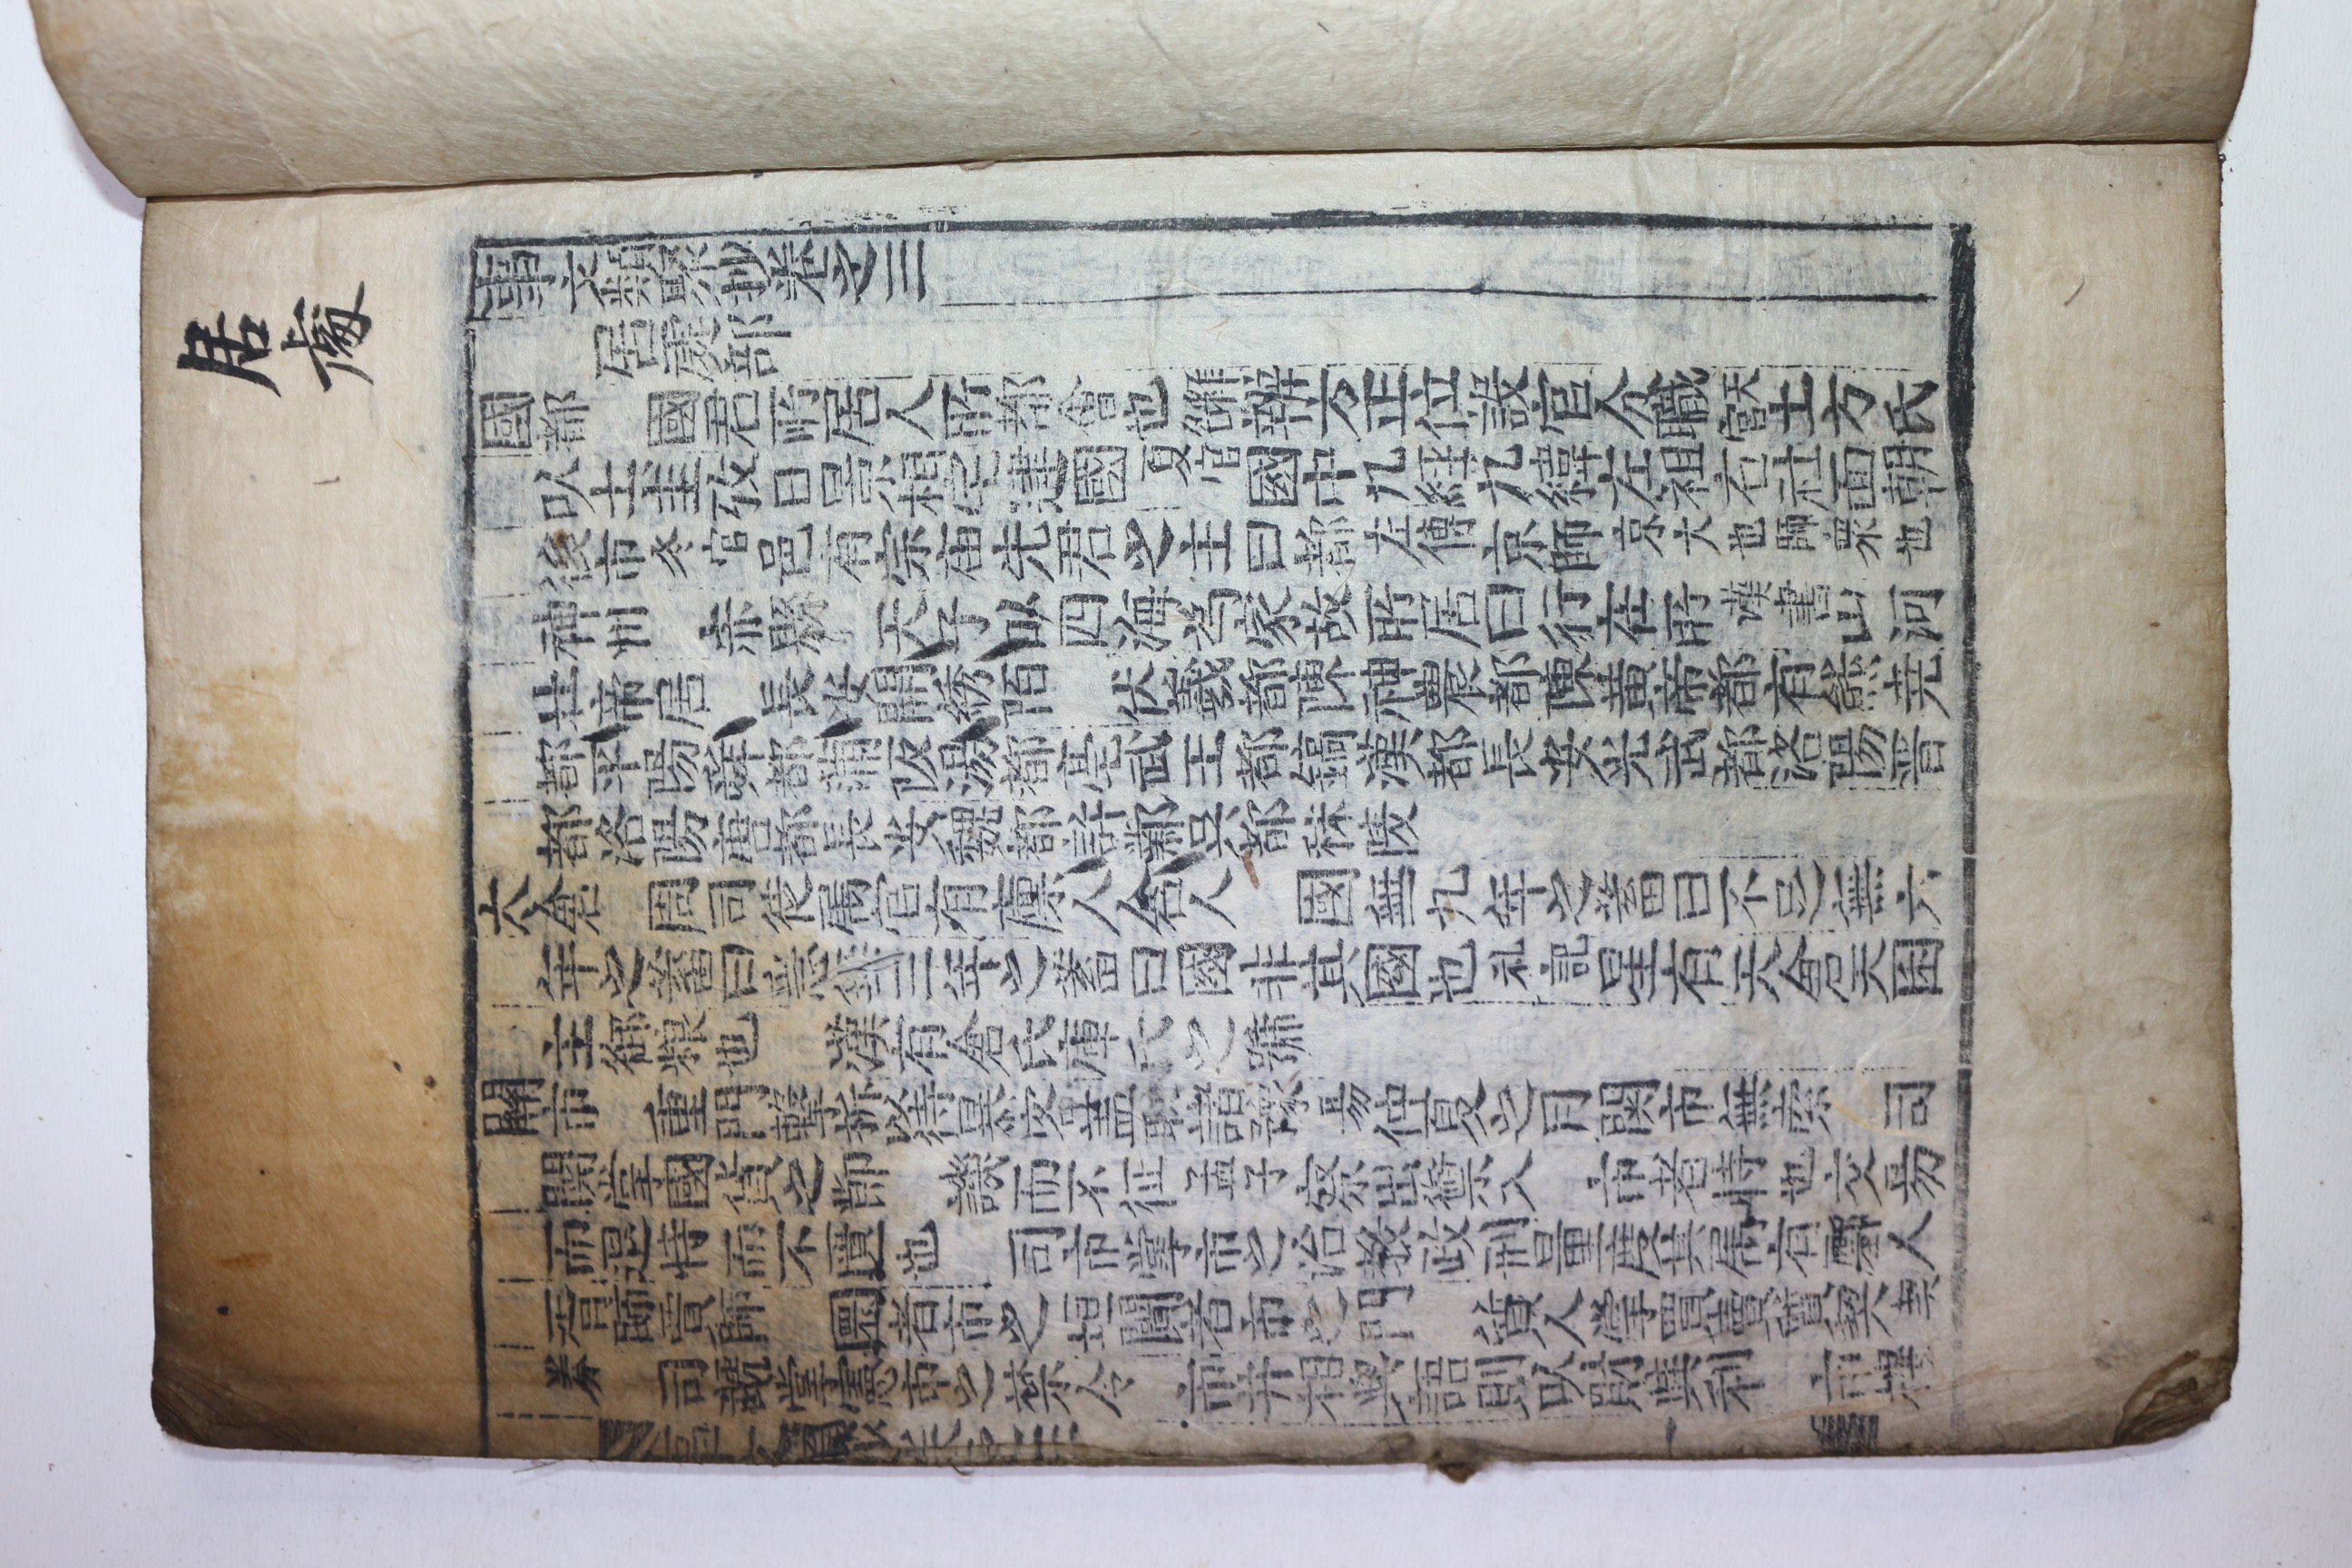 居處
事文類聚抄卷之三
居處部
國都 國君所居人所都會也 惟辨方正位設官分職天官土方氏
以土圭致日景相宅建國夏官國中九經九緯左祖右社面朝
後市冬官邑有宗庙先君之主曰都左傳京師京大也師衆也
神州 赤縣 天子以四海為家故所居曰行在所漢書山河
壮帝居 長安開綉陌 伏羲都陳神農都陳黃帝都有熊尭
都平陽舜都蒲阪湯都亳武王都鎬漢都長安光武都洛陽晋
都洛陽唐都長安魏都許鄴吳都秣陵
六倉 周司徒属官有廪人倉人 國無九年之蓄曰不足無六
年之蓄曰急無三年之蓄曰國非其國也礼記星有天倉天囷
主御粮也 漢有倉氏庫氏之號
關市 重門擊柝以待暴客盖取諸豫易仲夏之月関市無索 司
関掌國貨之節 譏而不征孟子察出禦入 市者恃也交易
而退恃而不匱也 司市掌市之治教政刑量度其属有鄽人
胥師賈師 闤者市之垣闠者市之門 質人掌買賣質契漢
券 司虣掌憲市之禁令 市井相與語則以財與利 市樓